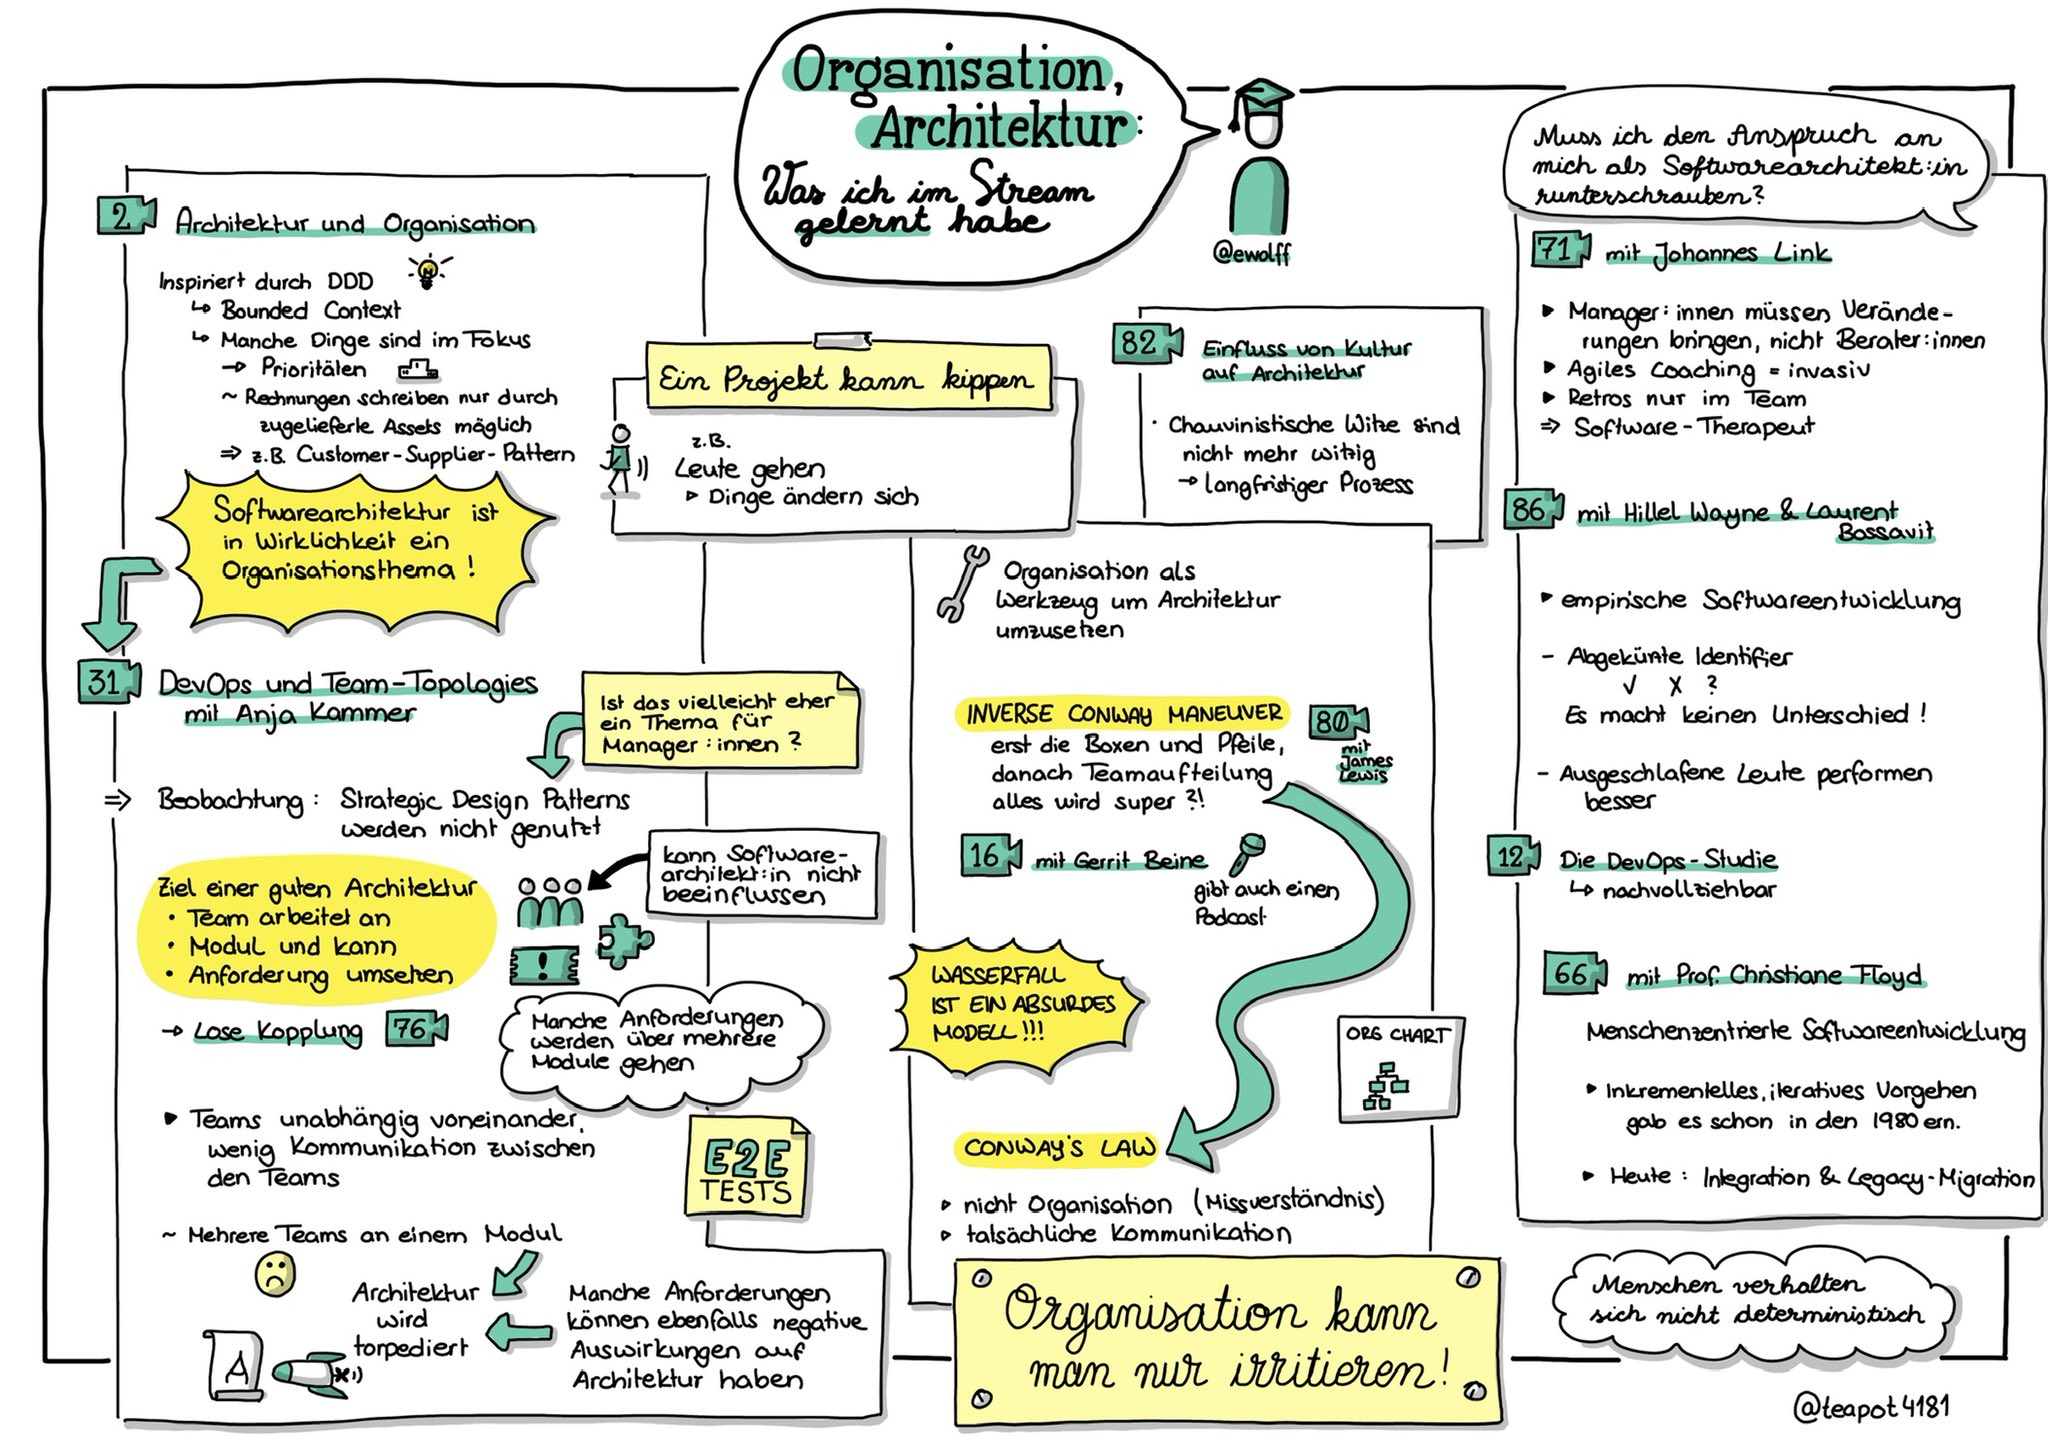 Organisation,
Architektur:
Was ich im Stream
gelernt habe
@ewolff
2
Architektur und Organisation
Inspiriert durch DDD
↳ Bounded Context
↳ Manche Dinge sind im Fokus
→ Prioritäten
~ Rechnungen schreiben nur durch
zugelieferte Assets möglich
⇒ z.B. Customer-Supplier-Pattern
Softwarearchitektur ist
in Wirklichkeit ein
Organisationsthema!
31
DevOps und Team-Topologies
mit Anja Kammer
Ist das vielleicht eher
ein Thema für
Manager:innen?
⇒ Beobachtung: Strategic Design Patterns
werden nicht genutzt
Ziel einer guten Architektur
• Team arbeitet an
• Modul und kann
• Anforderung umsetzen
kann Software-
architekt:in nicht
beeinflussen
!
→ Lose Kopplung
76
Manche Anforderungen
werden über mehrere
Module gehen
▸ Teams unabhängig voneinander,
wenig Kommunikation zwischen
den Teams
E2E
TESTS
~ Mehrere Teams an einem Modul
Architektur
wird
torpediert
A
Manche Anforderungen
können ebenfalls negative
Auswirkungen auf
Architektur haben
Ein Projekt kann kippen
z.B.
Leute gehen
▹ Dinge ändern sich
82
Einfluss von Kultur
auf Architektur
· Chauvinistische Witze sind
nicht mehr witzig
→ langfristiger Prozess
Organisation als
Werkzeug um Architektur
umzusetzen
INVERSE CONWAY MANEUVER
80
mit
James
Lewis
erst die Boxen und Pfeile,
danach Teamaufteilung
alles wird super ?!
16
mit Gerrit Beine
gibt auch einen
Podcast
WASSERFALL
IST EIN ABSURDES
MODELL!!!
ORG CHART
CONWAY'S LAW
▹ nicht Organisation (Missverständnis)
▹ tatsächliche Kommunikation
Organisation kann
man nur irritieren!
Muss ich den Anspruch an
mich als Softwarearchitekt:in
runterschrauben?
71
mit Johannes Link
▸ Manager:innen müssen Verände-
rungen bringen, nicht Berater:innen
▸ Agiles Coaching = invasiv
▸ Retros nur im Team
⇒ Software-Therapeut
86
mit Hillel Wayne & Laurent
Bossavit
▸ empirische Softwareentwicklung
- Abgekürzte Identifier
√ X ?
Es macht keinen Unterschied!
- Ausgeschlafene Leute performen
besser
12
Die DevOps-Studie
↳ nachvollziehbar
66
mit Prof. Christiane Floyd
Menschenzentrierte Softwareentwicklung
▸ Inkrementelles, iteratives Vorgehen
gab es schon in den 1980ern.
▸ Heute: Integration & Legacy-Migration
Menschen verhalten
sich nicht deterministisch
@teapot4181